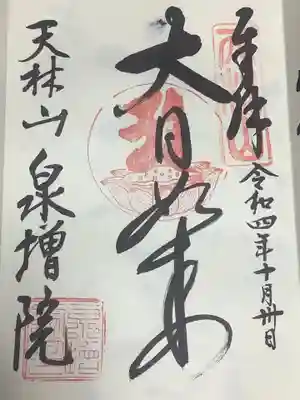 奉拝
令和四年十月卅日
大日如来
天林山泉増院